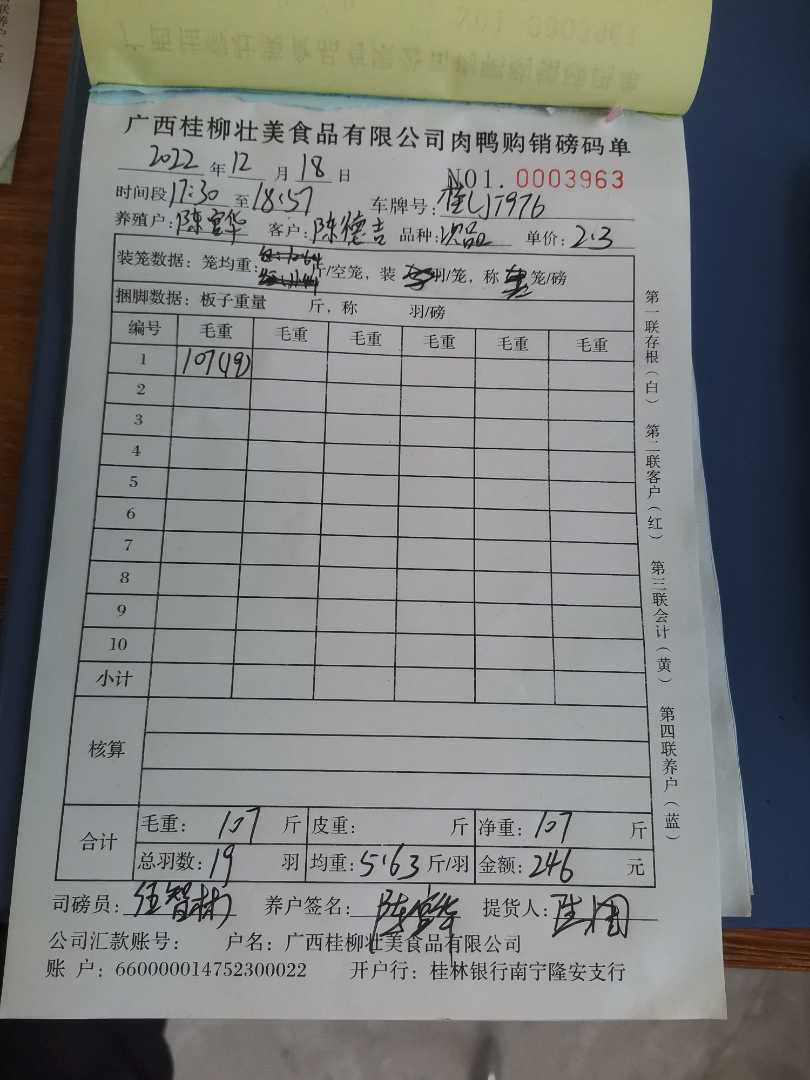 广西桂柳壮美食品有限公司肉鸭购销磅码单
2022 年 12 月 18 日 NO1. 0003963
时间段 17:30 至 18:57 车牌号:
养殖户: 陈宝华 客户: 陈德吉 品种: 次品 单价: 2.3
装笼数据: 笼均重: 斤/空笼, 装 羽/笼, 称 笼/磅
捆脚数据: 板子重量 斤, 称 羽/磅
编号 毛重 毛重 毛重 毛重 毛重 毛重
1 107(19)
2
3
4
5
6
7
8
9
10
小计
核算
合计 毛重: 107 斤 皮重: 斤 净重: 107 斤
总羽数: 19 羽 均重: 5.63 斤/羽 金额: 246 元
司磅员: 养户签名: 提货人:
公司汇款账号: 户名: 广西桂柳壮美食品有限公司
账 户: 660000014752300022 开户行: 桂林银行南宁隆安支行
第一联存根(白) 第二联客户(红) 第三联会计(黄) 第四联养户(蓝)